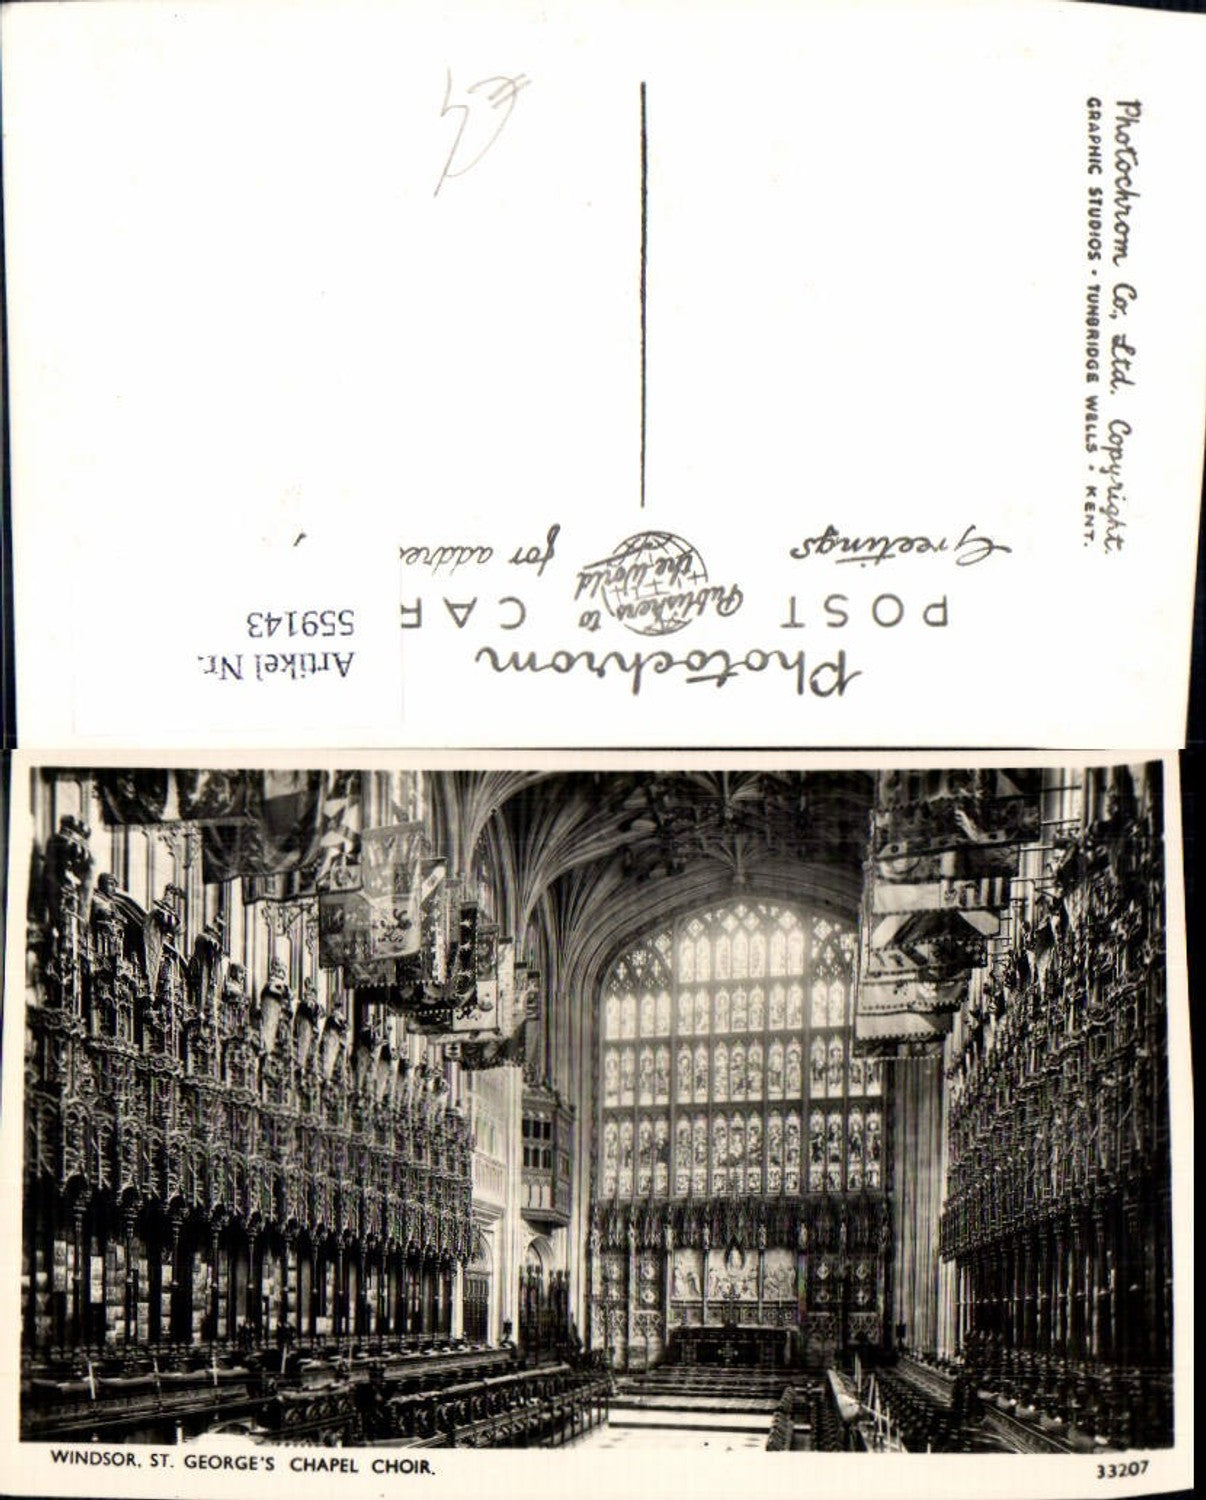 Photochrom
POST CAR
Publishers to
the World
Greetings
for addre
Artikel Nr.
559143
Photochrom Co., Ltd. Copyright.
GRAPHIC STUDIOS • TUNBRIDGE WELLS • KENT.
WINDSOR, ST. GEORGE'S CHAPEL CHOIR.
33207